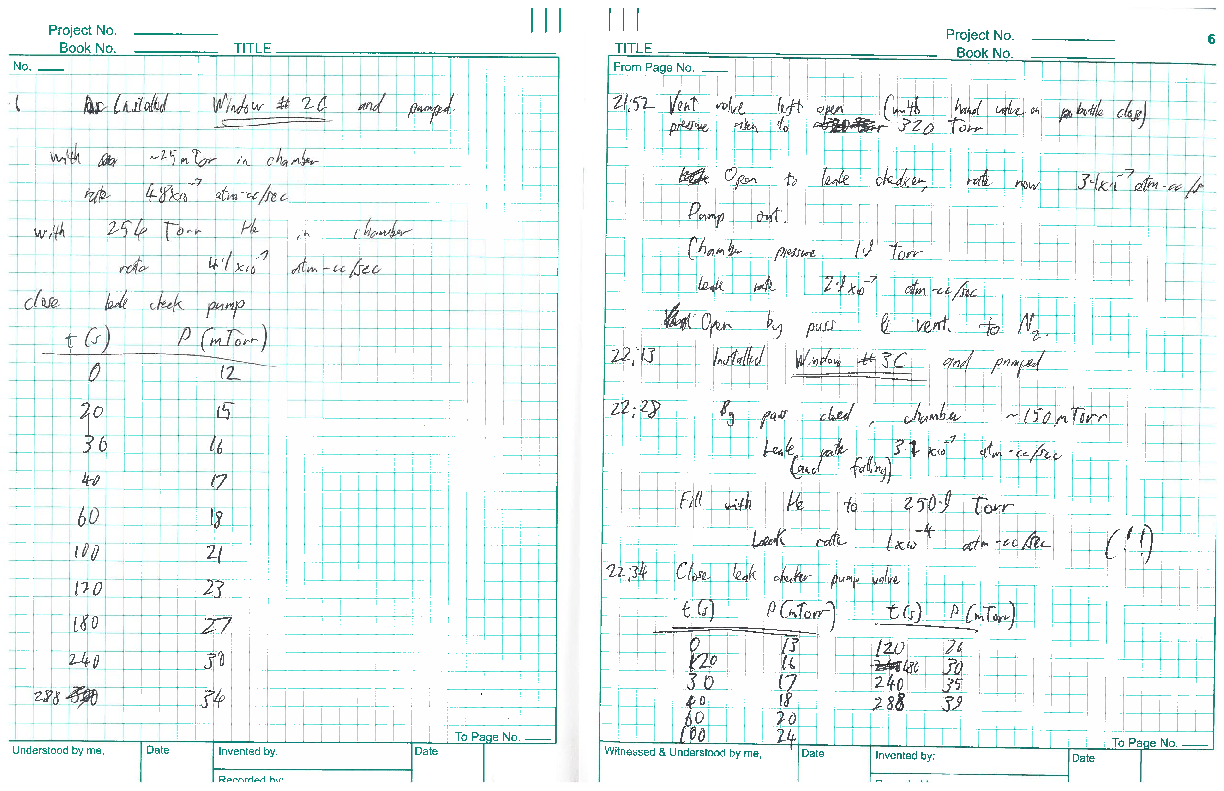 Project No.
Book No. TITLE
No.
Installed Window # 2C and pumped.
with ~25 mTorr in chamber
rate 4.8x10⁻⁷ atm-cc/sec
with 254 Torr He in chamber
rate 4.1x10⁻⁷ atm-cc/sec
close leak check pump
t(s) P (mTorr)
0 12
20 15
30 16
40 17
60 18
100 21
120 23
180 27
240 30
288 34
Understood by me, Date Invented by. Date
To Page No.
Recorded by:
Project No. 6
TITLE Book No.
From Page No.
21:52 Vent valve left open (with hand valve on bottle close)
pressure risen to 320 Torr
Open to leak checker, rate now atm-cc/s
Pump out.
Chamber pressure Torr
leak rate atm-cc/sec
Open by pass & vent to N₂.
22:13 Installed Window # 3C and pumped
22:28 By pass closed, chamber ~150 mTorr
Leak rate atm-cc/sec
(and falling)
Fill with He to 250.9 Torr
Leak rate 1x10⁻⁴ atm-cc/sec (!!)
22:34 Close leak checker pump valve
t(s) P(mTorr) t(s) P(mTorr)
0 13 120 26
20 16 180 30
30 17 240 35
40 18 288 39
60 20
100 24
To Page No.
Witnessed & Understood by me, Date Invented by: Date